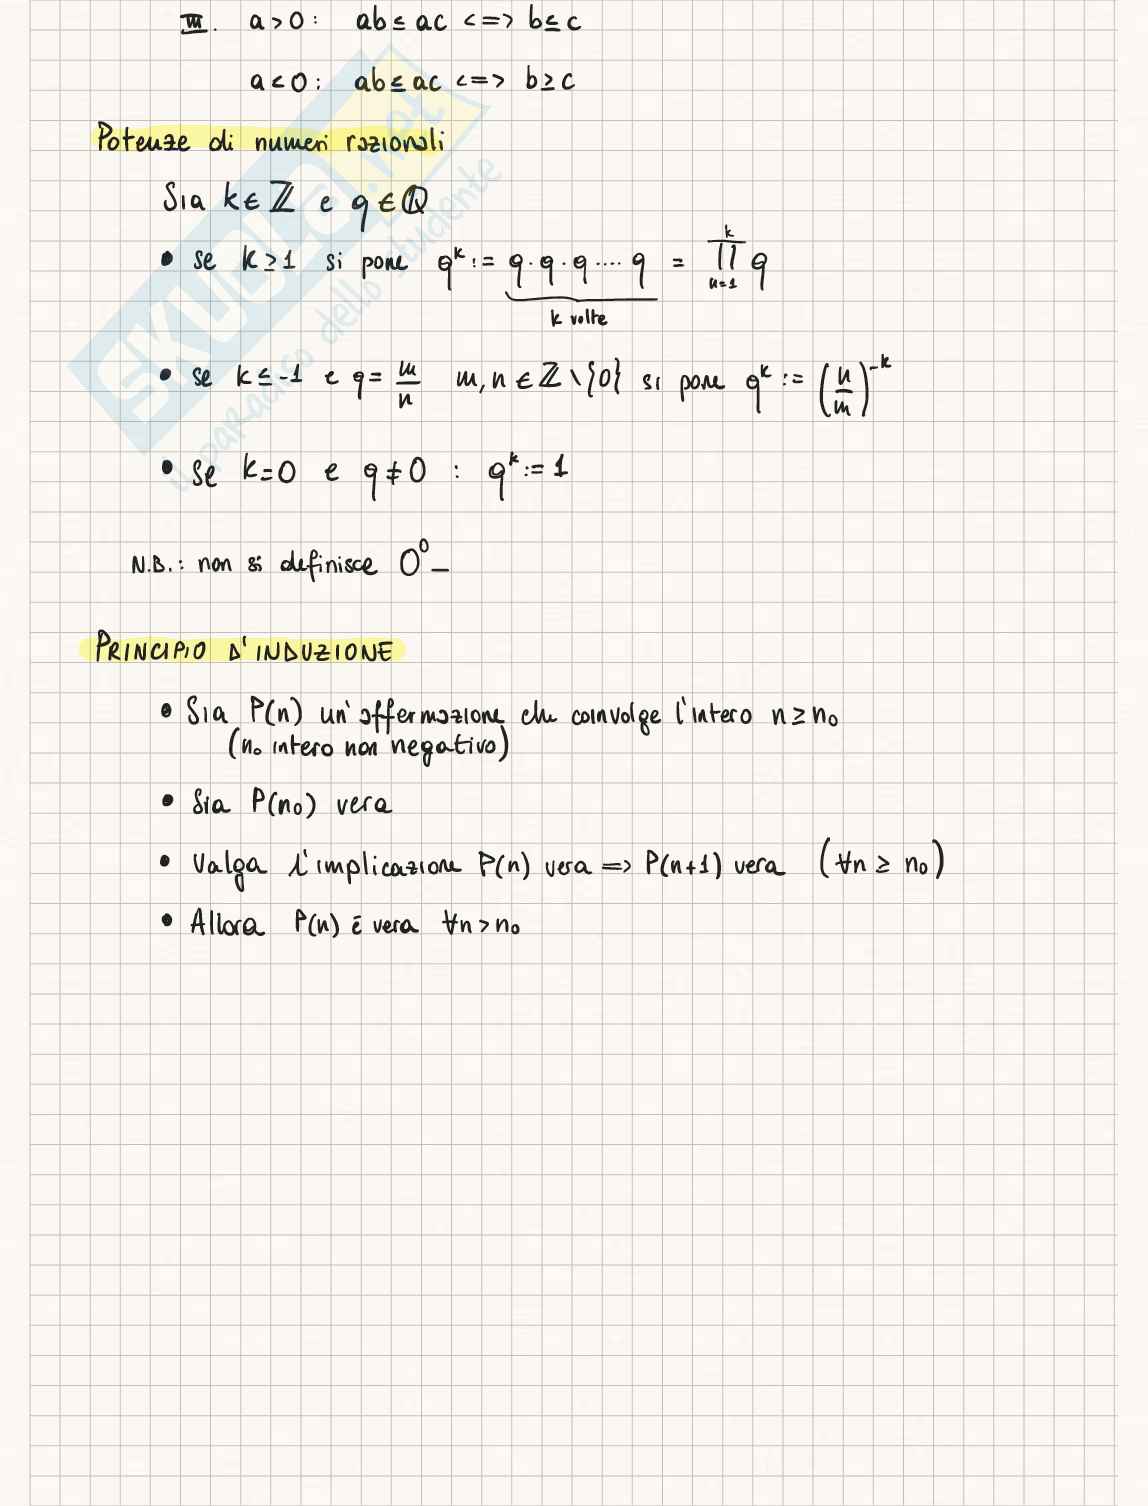 III. a > 0 : ab ≤ ac <=> b ≤ c
a < 0 : ab ≤ ac <=> b ≥ c
Potenze di numeri razionali
Sia k ∈ ℤ e q ∈ ℚ
• se k ≥ 1 si pone q^k := q · q · q ···· q = ∏_{n=1}^{k} q
k volte
• se k ≤ -1 e q = m/n m, n ∈ ℤ \ {0} si pone q^k := (n/m)^{-k}
• Se k = 0 e q ≠ 0 : q^k := 1
N.B.: non si definisce 0^0 –
PRINCIPIO D'INDUZIONE
• Sia P(n) un'affermazione che coinvolge l'intero n ≥ n₀
(n₀ intero non negativo)
• Sia P(n₀) vera
• Valga l'implicazione P(n) vera => P(n+1) vera (∀n ≥ n₀)
• Allora P(n) è vera ∀n > n₀
SKUOLA.net
il paradiso dello studente